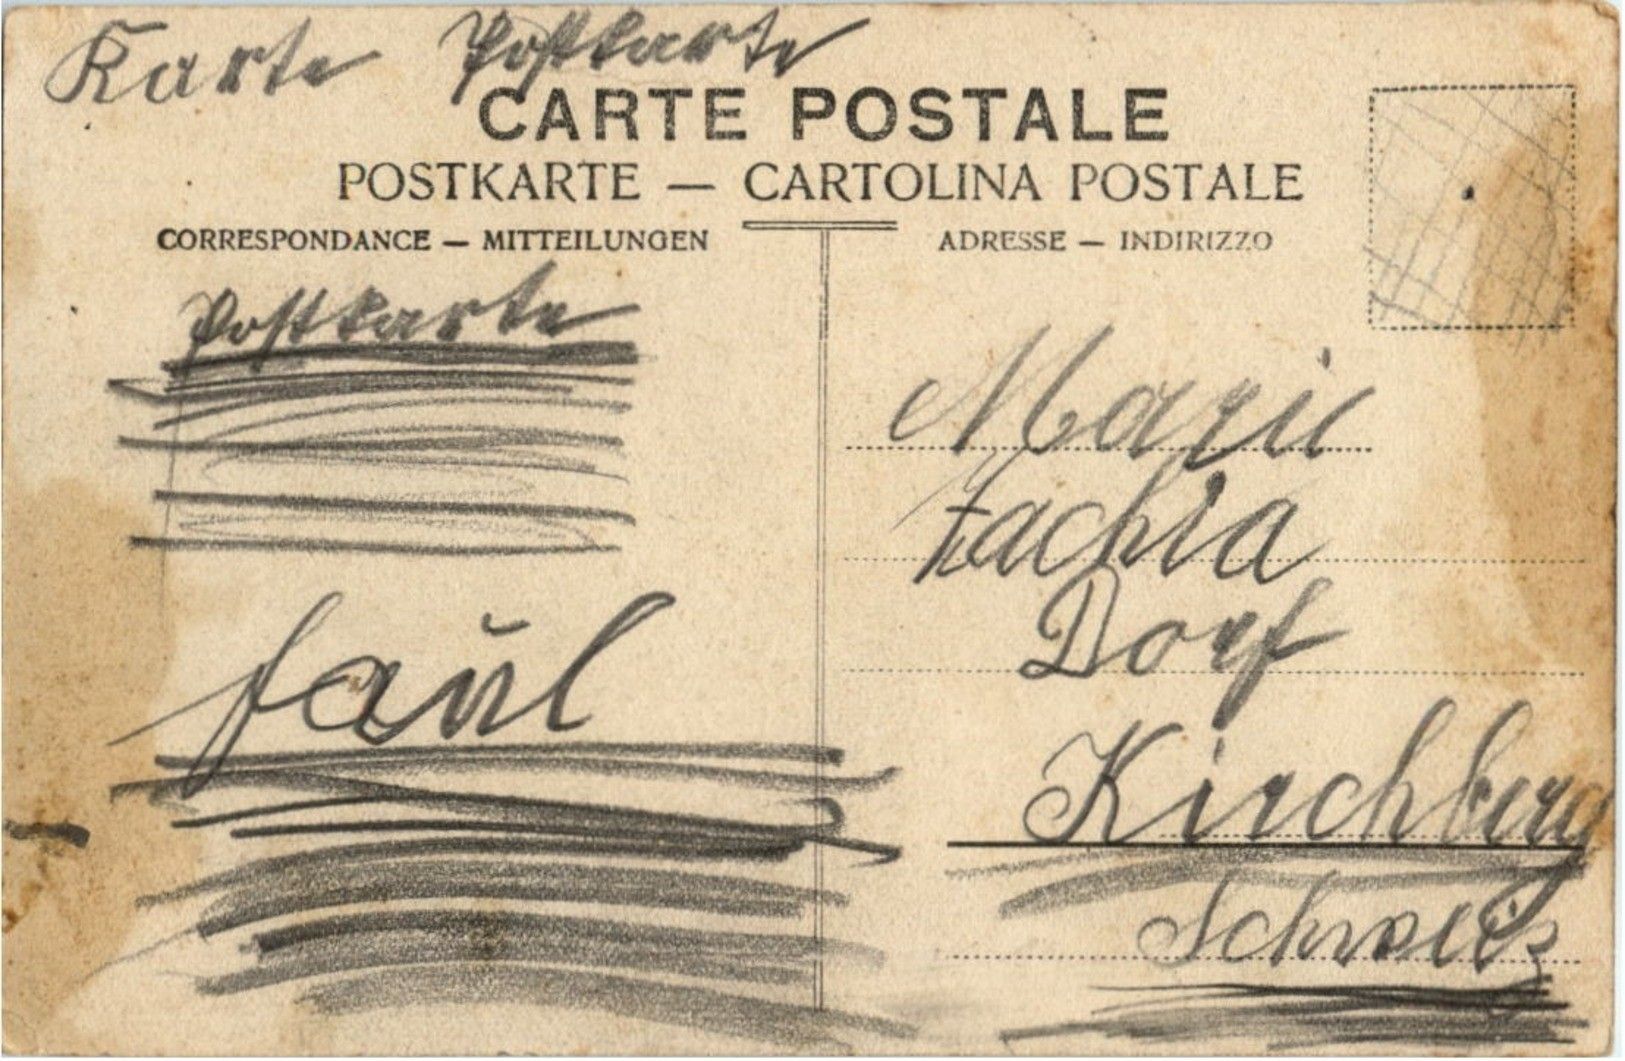 Karte Postkarte
CARTE POSTALE
POSTKARTE — CARTOLINA POSTALE
CORRESPONDANCE — MITTEILUNGEN
Postkarte
faŭl
ADRESSE — INDIRIZZO
Marie
Zachia
Dorf
Kirchberg
Schweiz